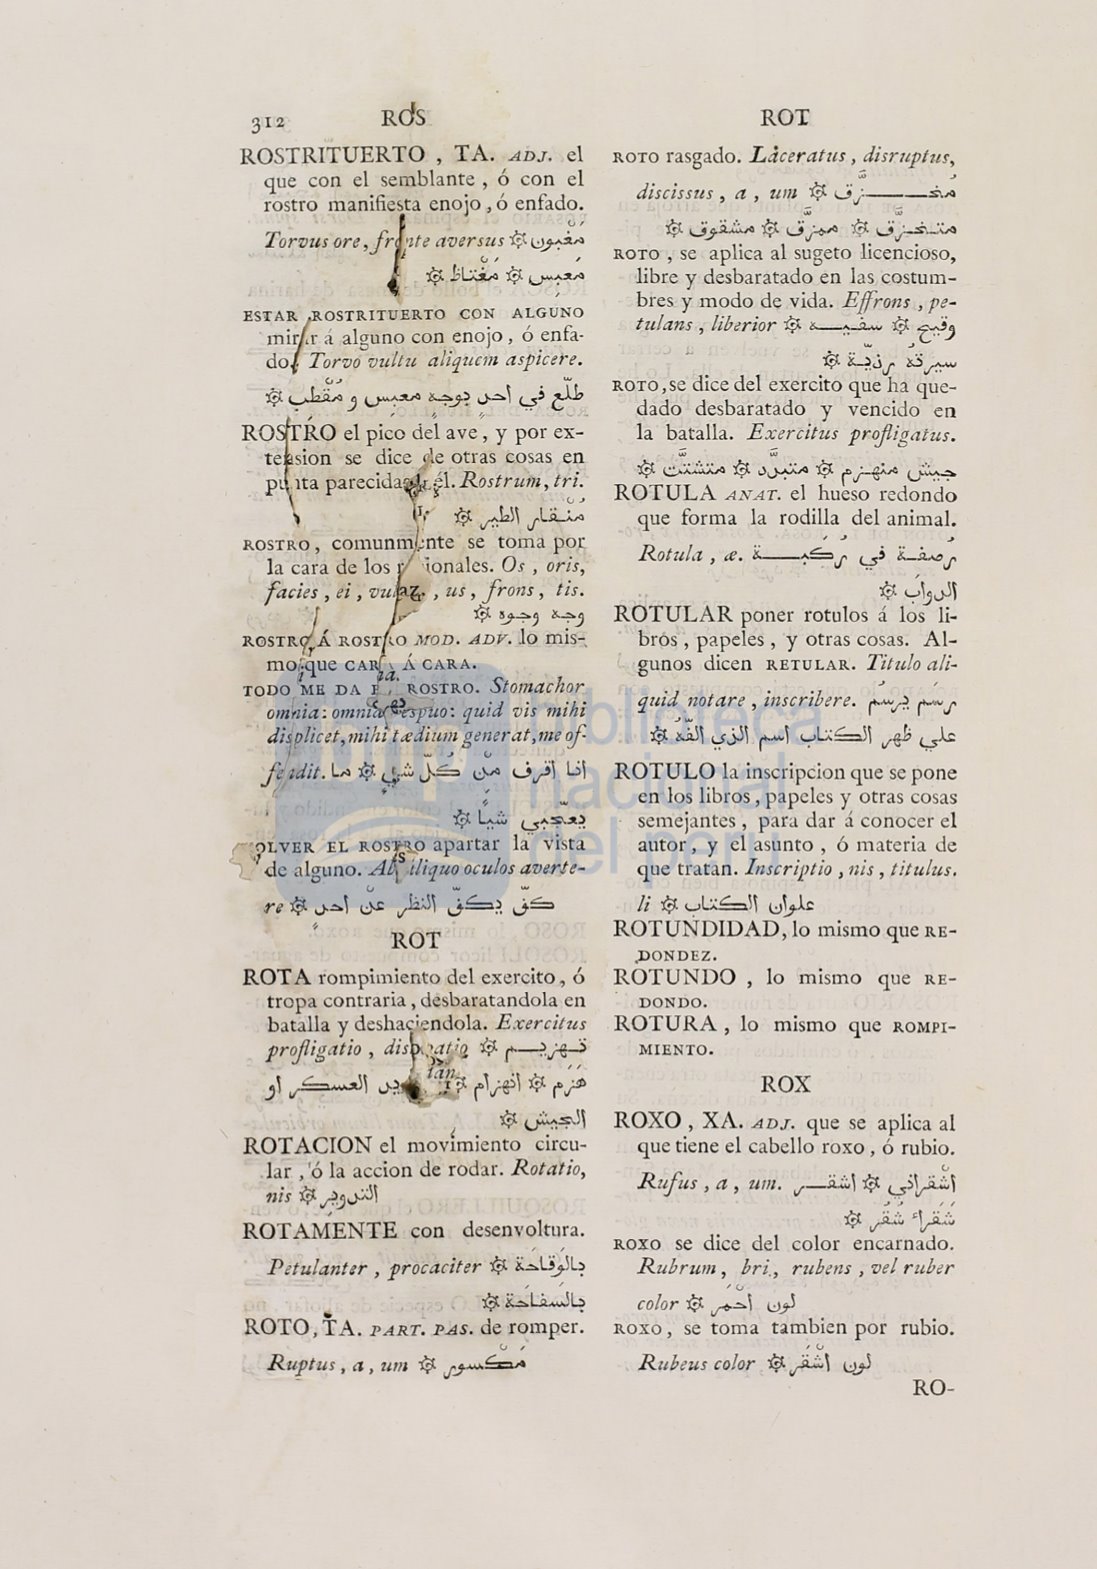 312 ROS
ROSTRITUERTO , TA. ADJ. el
que con el semblante , ó con el
rostro manifiesta enojo , ó enfado.
Torvus ore, aversus ۞ مَغْبون
مَعَبِس ۞ مَغْتاظ ۞
ESTAR ROSTRITUERTO CON ALGUNO
mirar á alguno con enojo , ó enfa-
do. Torvo vultu aliquem aspicere.
طلّع في احدٍ بوجهِ معبِس و مُقَطَّب ۞
ROSTRO el pico del ave, y por ex-
tension se dice de otras cosas en
punta parecida él. Rostrum, tri.
منقار الطير ۞
ROSTRO, comunmente se toma por
la cara de los Os , oris,
facies , ei , , us , frons , tis.
وجه وجوه ۞
ROSTRO Á ROSTRO MOD. ADV. lo mis-
mo que CARA Á CARA.
TODO ME DA ROSTRO. Stomachor
omnia: omnia respuo: quid vis mihi
displicet, mihi tædium generat, me of-
fendit. انا اقرف مِن كُلّ شيٍ ۞ ما
يعجّبني شيًا ۞
VOLVER EL ROSTRO apartar la vista
de alguno. oculos averte-
re ۞ كفّ يكفّ النظر عن احدٍ
ROT
ROTA rompimiento del exercito, ó
tropa contraria, desbaratandola en
batalla y deshaciendola. Exercitus
profligatio , ۞ تهزيم
هَزم ۞ انهزام ۞ العسكر او
الجيش ۞
ROTACION el movimiento circu-
lar , ó la accion de rodar. Rotatio,
nis ۞ التدوير
ROTAMENTE con desenvoltura.
Petulanter , procaciter ۞ بالوَقاحَة
بالسفاحَة ۞
ROTO, TA. PART. PAS. de romper.
Ruptus , a , um ۞ مَكْسور
ROT
ROTO rasgado. Laceratus , disruptus,
discissus , a , um ۞ مُخزّق
متخزّق ۞ ممزّق ۞ مشقوق ۞
ROTO , se aplica al sugeto licencioso,
libre y desbaratado en las costum-
bres y modo de vida. Effrons , pe-
tulans , liberior ۞ سفيه ۞ وقيح
سيرتهُ رذيّة ۞
ROTO, se dice del exercito que ha que-
dado desbaratado y vencido en
la batalla. Exercitus profligatus.
جيش منهزم ۞ متبدّد ۞ متشتّت ۞
ROTULA ANAT. el hueso redondo
que forma la rodilla del animal.
Rotula , æ. رُصفة في رُكَبة
الدوابّ ۞
ROTULAR poner rotulos á los li-
bros , papeles , y otras cosas. Al-
gunos dicen RETULAR. Titulo ali-
quid notare , inscribere. رسَم يرسُم
علي ظهر الكتاب اسم الذي الّفهُ ۞
ROTULO la inscripcion que se pone
en los libros, papeles y otras cosas
semejantes , para dar á conocer el
autor , y el asunto , ó materia de
que tratan. Inscriptio , nis , titulus.
li ۞ علوان الكتاب
ROTUNDIDAD, lo mismo que RE-
DONDEZ.
ROTUNDO , lo mismo que RE-
DONDO.
ROTURA , lo mismo que ROMPI-
MIENTO.
ROX
ROXO , XA. ADJ. que se aplica al
que tiene el cabello roxo , ó rubio.
Rufus , a , um. اشقر ۞ اشْقراني
شَقراء شُقُر ۞
ROXO se dice del color encarnado.
Rubrum , bri , rubens , vel ruber
color ۞ لون احْمَر
ROXO , se toma tambien por rubio.
Rubeus color ۞ لون اشْقَر
RO-
biblioteca
nacional
del perú